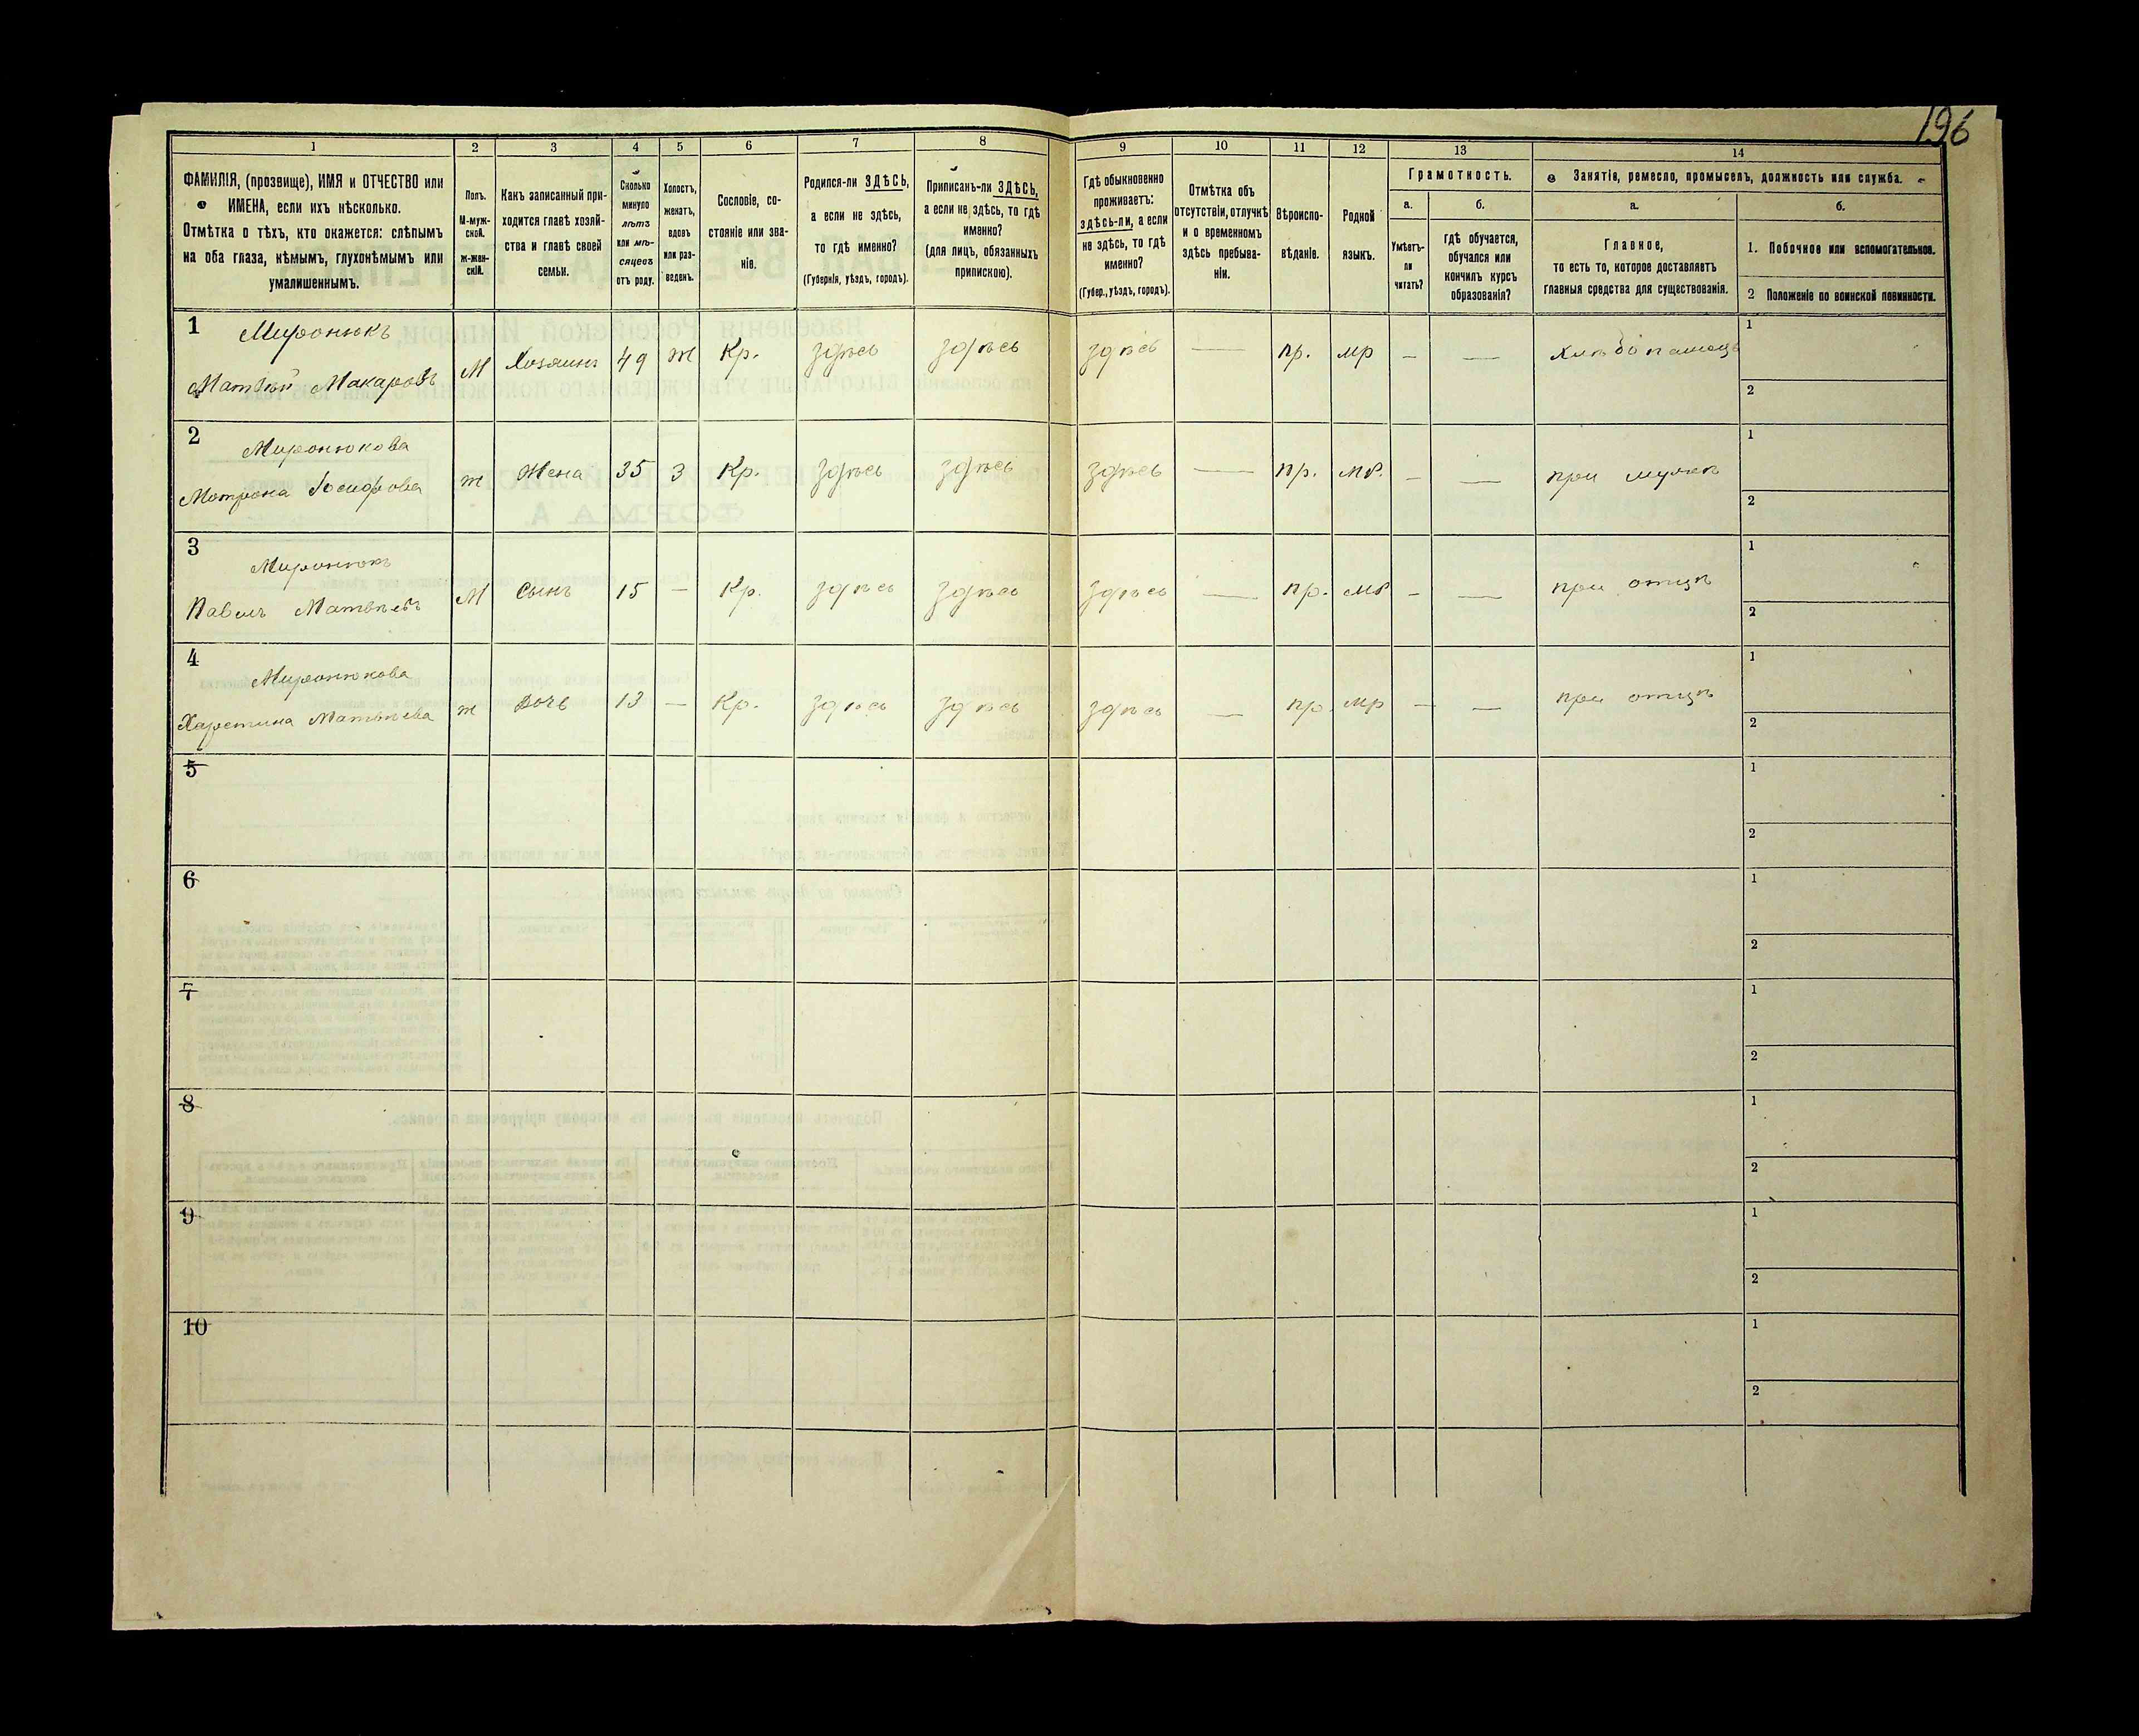 196
1 2 3 4 5 6 7 8 9 10 11 12 13 14
ФАМИЛІЯ, (прозвище), ИМЯ и ОТЧЕСТВО или
ИМЕНА, если ихъ нѣсколько.
Отмѣтка о тѣхъ, кто окажется: слѣпымъ
на оба глаза, нѣмымъ, глухонѣмымъ или
умалишеннымъ.
Полъ.
М-муж-
ской.
ж-жен-
скій.
Какъ записанный при-
ходится главѣ хозяй-
ства и главѣ своей
семьи.
Сколько
минуло
лѣтъ
или мѣ-
сяцевъ
отъ роду.
Холостъ,
женатъ,
вдовъ
или раз-
веденъ.
Сословіе, со-
стояніе или зва-
ніе.
Родился-ли ЗДѢСЬ,
а если не здѣсь,
то гдѣ именно?
(Губернія, уѣздъ, городъ).
Приписанъ-ли ЗДѢСЬ,
а если не здѣсь, то гдѣ
именно?
(для лицъ, обязанныхъ
припискою).
Гдѣ обыкновенно
проживаетъ:
здѣсь-ли, а если
не здѣсь, то гдѣ
именно?
(Губер., уѣздъ, городъ).
Отмѣтка объ
отсутствіи, отлучкѣ
и о временномъ
здѣсь пребыва-
ніи.
Вѣроиспо-
вѣданіе.
Родной
языкъ.
Грамотность.
а.
Умѣетъ-
ли
читать?
б.
гдѣ обучается,
обучался или
кончилъ курсъ
образованія?
Занятіе, ремесло, промыселъ, должность или служба.
а.
Главное,
то есть то, которое доставляетъ
главныя средства для существованія.
б.
1. Побочное или вспомогательное.
2 Положеніе по воинской повинности.
1 Миронюкъ
Матвѣй Макаровъ М Хозяинъ 49 ж Кр. здѣсь здѣсь здѣсь — пр. мр — — хлѣбопашецъ
1
2
2 Миронюкова
Мотрона Іосифова ж Жена 35 З Кр. здѣсь здѣсь здѣсь — пр. мр. — — при мужѣ
1
2
3 Миронюкъ
Павелъ Матвѣевъ М Сынъ 15 — Кр. здѣсь здѣсь здѣсь — пр. мр — — при отцѣ
1
2
4 Миронюкова
Харетина Матвѣева ж Дочь 13 — Кр. здѣсь здѣсь здѣсь — пр. мр — — при отцѣ
1
2
5
1
2
6
1
2
7
1
2
8
1
2
9
1
2
10
1
2